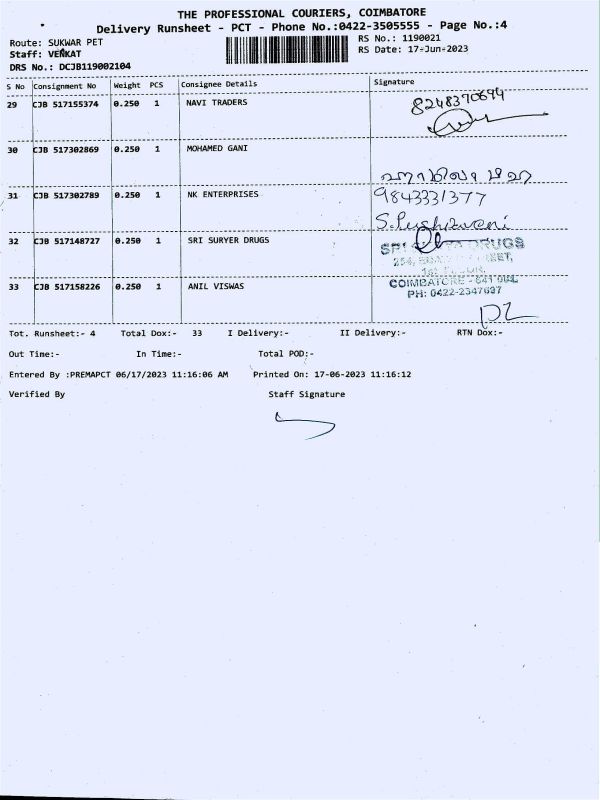 THE PROFESSIONAL COURIERS, COIMBATORE
Delivery Runsheet - PCT - Phone No.:0422-3505555 - Page No.:4
Route: SUKWAR PET
RS No.: 1190021
Staff: VENKAT
RS Date: 17-Jun-2023
DRS No.: DCJB119002104
S No Consignment No Weight PCS Consignee Details Signature
29 CJB 517155374 0.250 1 NAVI TRADERS
8248370694
30 CJB 517302869 0.250 1 MOHAMED GANI
31 CJB 517302789 0.250 1 NK ENTERPRISES 9843331377
32 CJB 517148727 0.250 1 SRI SURYER DRUGS
DRUGS
COIMBATORE - 641 001.
PH: 0422-2347697
33 CJB 517158226 0.250 1 ANIL VISWAS
Tot. Runsheet:- 4 Total Dox:- 33 I Delivery:- II Delivery:- RTN Dox:-
Out Time:- In Time:- Total POD:-
Entered By :PREMAPCT 06/17/2023 11:16:06 AM Printed On: 17-06-2023 11:16:12
Verified By Staff Signature